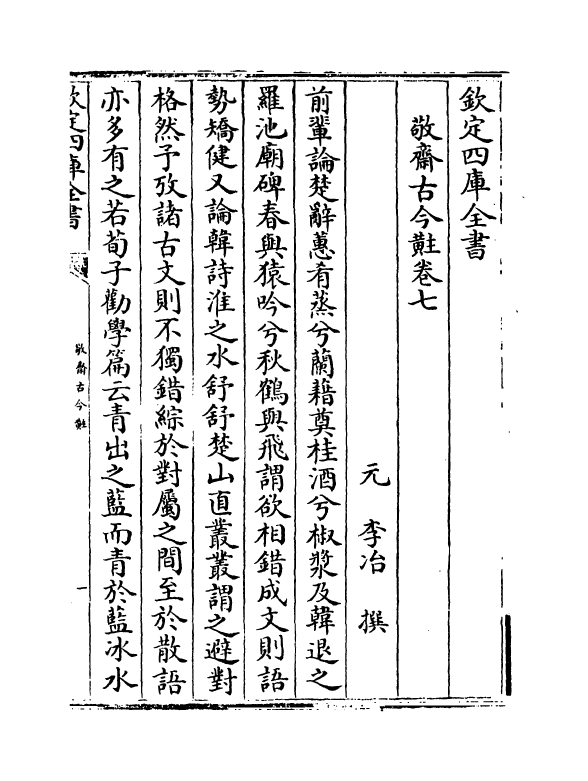 欽定四庫全書
敬齋古今黈卷七
元 李冶 撰
前輩論楚辭蕙肴蒸兮蘭藉奠桂酒兮椒漿及韓退之
羅池廟碑春與猿吟兮秋鶴與飛謂欲相錯成文則語
勢矯健又論韓詩淮之水舒舒楚山直叢叢謂之避對
格然予攷諸古文則不獨錯綜於對屬之間至於散語
亦多有之若荀子勸學篇云青出之藍而青於藍冰水
欽定四庫全書
敬齋古今黈
一